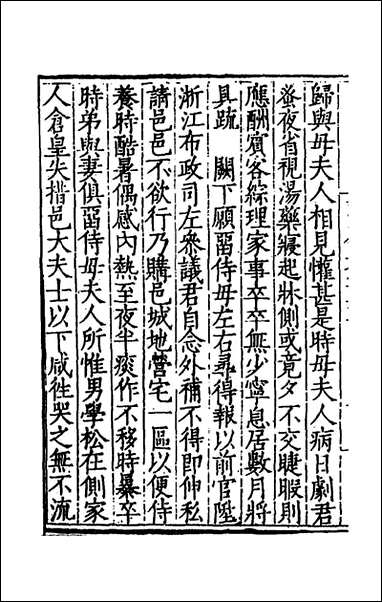 歸與母夫人相見懽甚是時母夫人病日劇君
蚤夜省視湯藥寢起牀側或竟夕不交睫暇則
應酬賓客綜理家事卒卒無少寧息居數月將
具疏　闕下願留侍母左右尋得報以前官陞
浙江布政司左叅議君自念外補不得即伸私
請邑邑不欲行乃購邑城地營宅一區以便侍
養時酷暑偶感內熱至夜半痰作不移時暴卒
時弟與妻俱留侍母夫人所惟男學松在側家
人倉皇失措邑大夫士以下咸徃哭之無不流